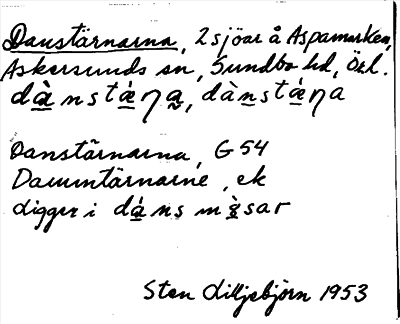 Danstärnarna, 2 sjöar å Aspamarken,
Askersunds sn, Sundbo hd, Örl.
dà̱nstá̱ŋa̱, dàṉstá̱ŋa
Danstärnarna, G 54
Dammtärnarne, ek
digger i dá̱ns mò̱sar
Sten Liljebjörn 1953